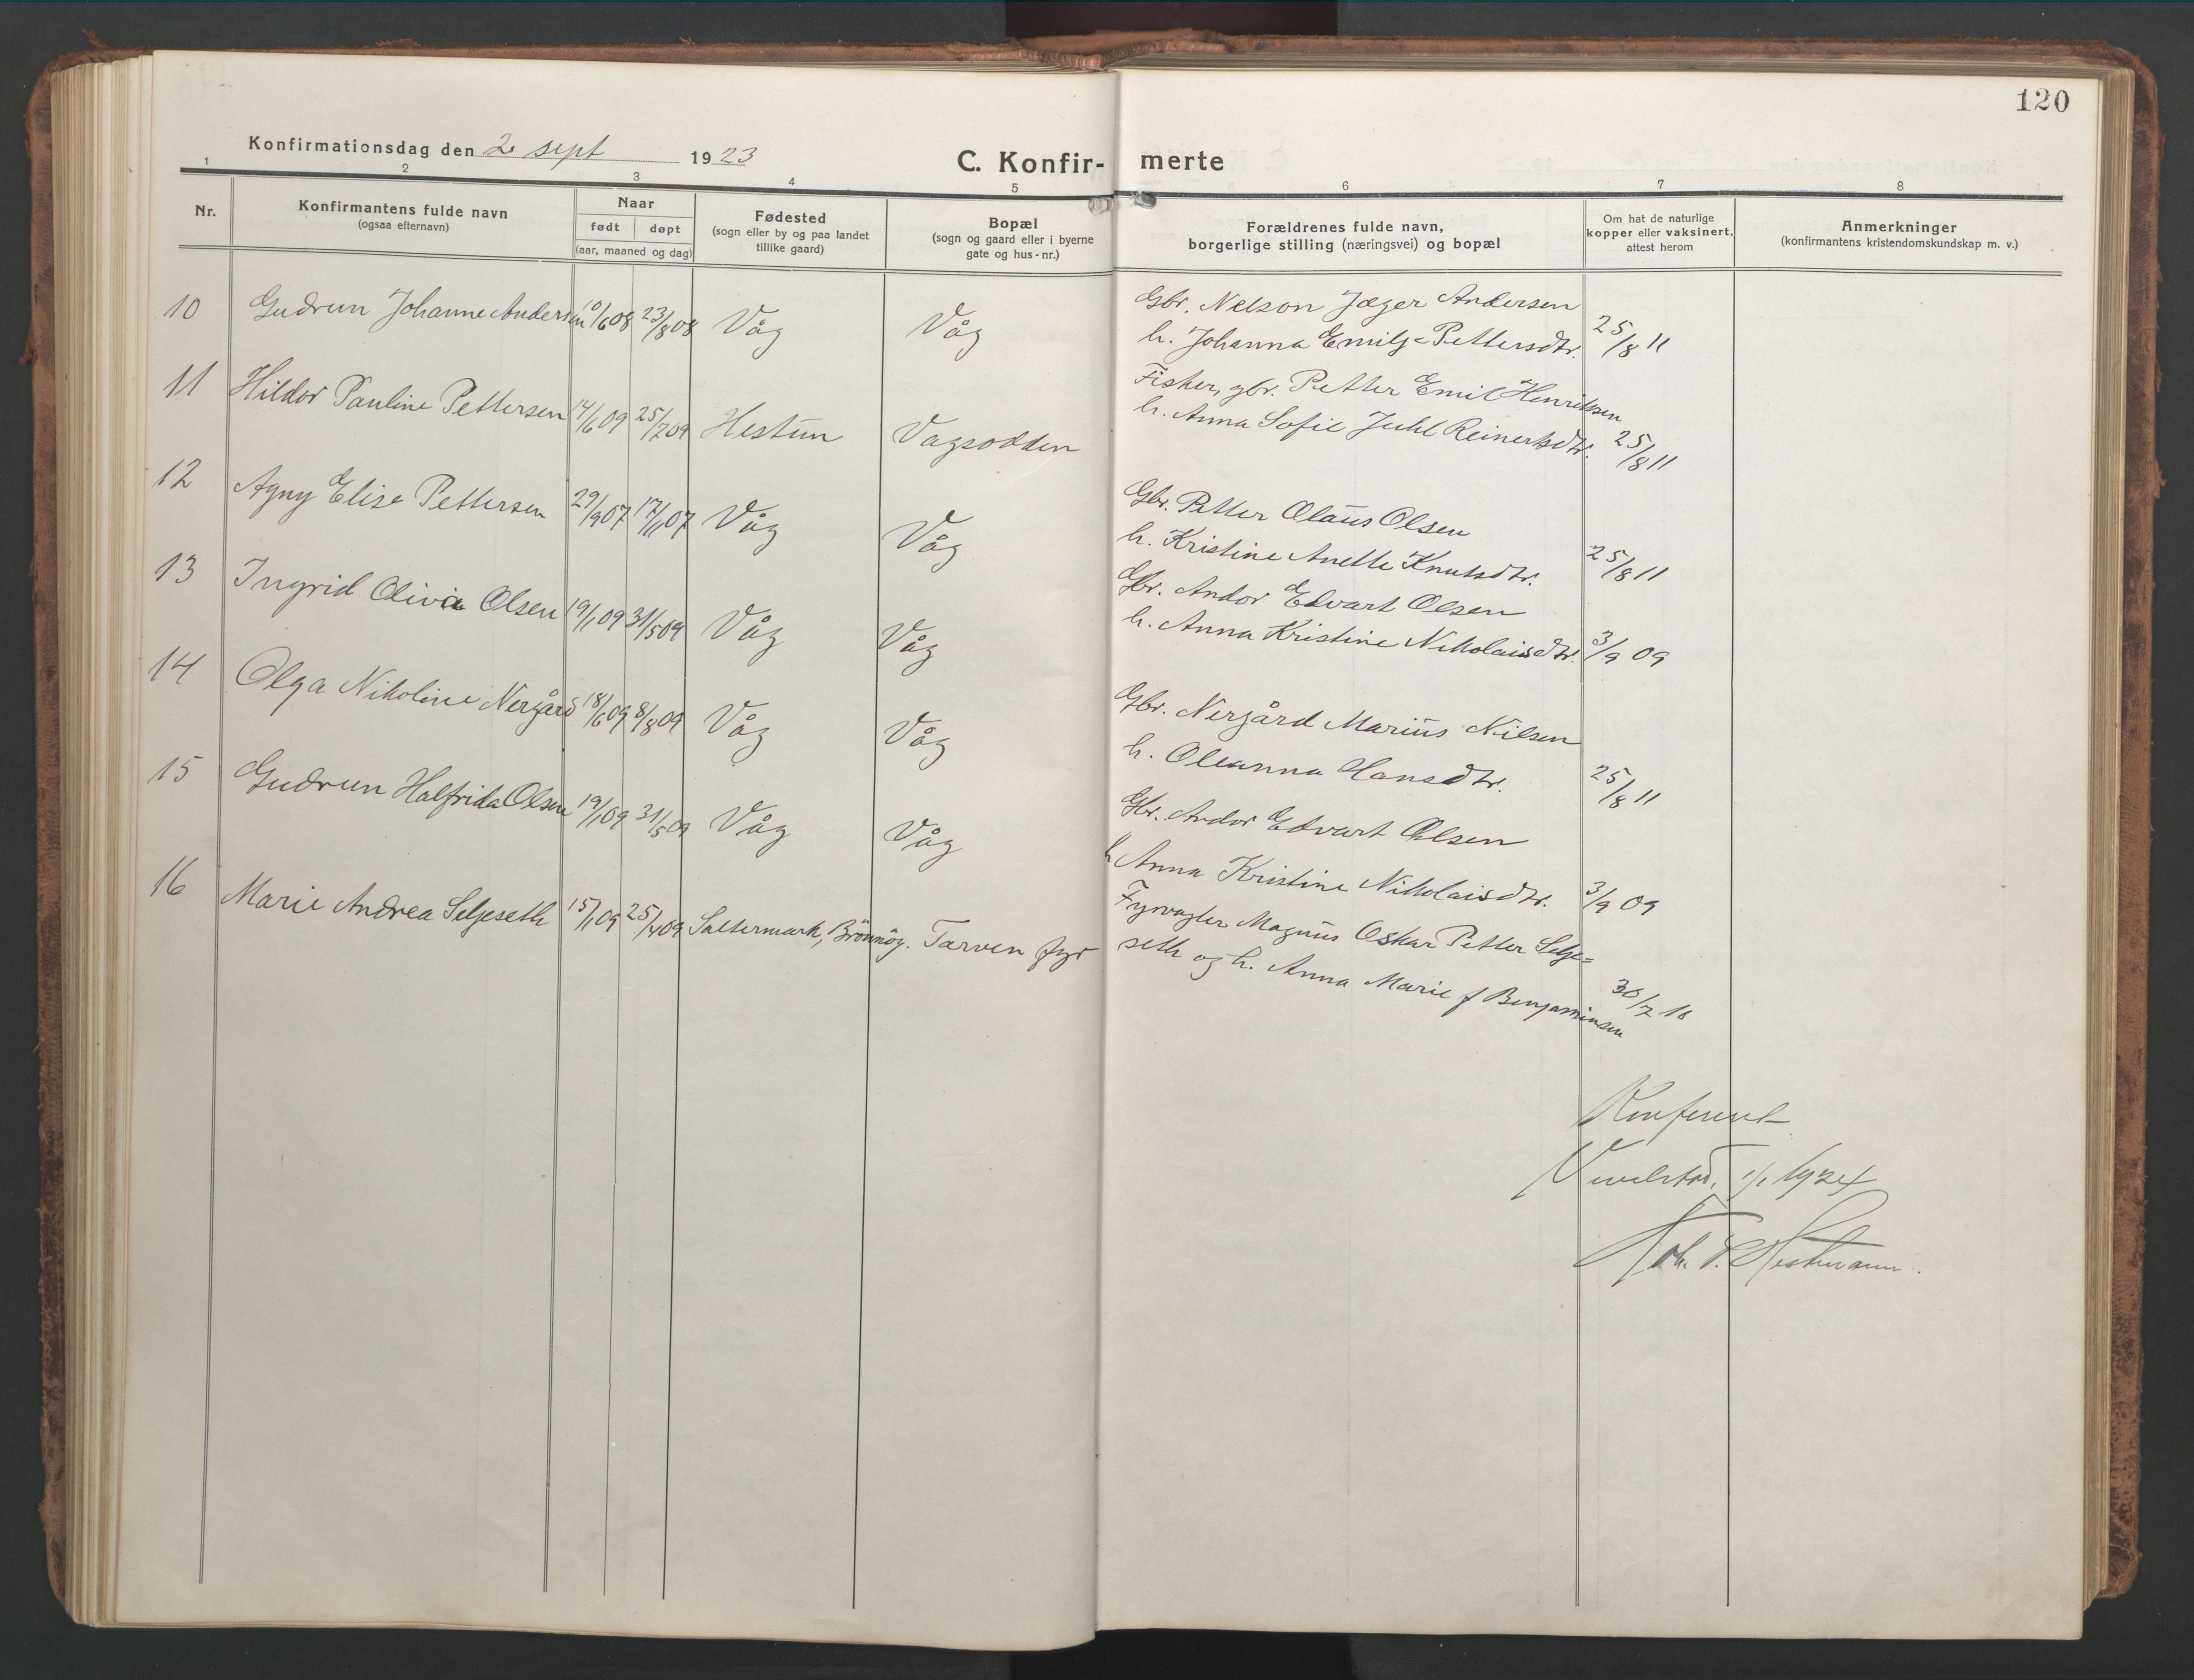 120
Konfirmationsdag den 2 sept 1923
C. Konfir- merte
1 2 3 4 5 6 7 8
Nr.
Konfirmantens fulde navn
(ogsaa efternavn)
Naar
født døpt
(aar, maaned og dag)
Fødested
(sogn eller by og paa landet
tillike gaard)
Bopæl
(sogn og gaard eller i byerne
gate og hus-nr.)
Forældrenes fulde navn,
borgerlige stilling (næringsvei) og bopæl
Om hat de naturlige
kopper eller vaksinert,
attest herom
Anmerkninger
(konfirmantens kristendomskundskap m. v.)
10 Gudrun Johanne Andersen 10/6 08 23/8 08 Våg Våg Gbr. Nelson Jæger Andersen
h. Johanna Emilje Pettersdtr. 25/8 11
11 Hildor Pauline Pettersen 14/6 09 25/7 09 Hestun Vagsodden Fisker, gbr. Petter Emil Henriksen
h. Anna Sofie Juhl Reinertsdtr. 25/8 11
12 Agny Elise Pettersen 29/9 07 17/11 07 Våg Våg Gbr. Petter Olaus Olsen
h. Kristine Anette Knutsdtr. 25/8 11
13 Ingrid Olivia Olsen 19/1 09 31/5 09 Våg Våg Gbr. Andor Edvart Olsen
h. Anna Kristine Nikolaisdtr. 3/9 09
14 Olga Nikoline Nergård 18/6 09 8/8 09 Våg Våg Gbr. Nergård Marius Nilsen
h. Oleanna Hansdtr. 25/8 11
15 Gudrun Halfrida Olsen 19/1 09 31/5 09 Våg Våg Gbr. Andor Edvart Olsen
h Anna Kristine Nikolaisdtr. 3/9 09
16 Marie Andrea Seljeseth 15/1 09 25/4 09 Saltermark, Brönnöy. Tarven fyr Fyrvagter Magnus Oskar Petter Selje=
seth og h. Anna Marie f Benjaminsen 30/7 18
Konferert
Vevelstad, 1/1 1924
Joh. P. Hestmann.